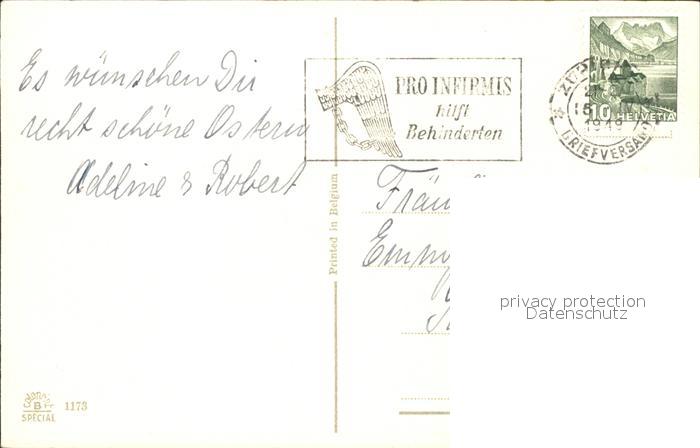 Es wünschen Dir
recht schöne Ostern
Adeline & Robert
PRO INFIRMIS
hilft
Behinderten
10 HELVETIA
BRIEFVERSAND
Printed in Belgium
Fräu
Emm
privacy protection
Datenschutz
COLORPRINT
B
SPECIAL
1173